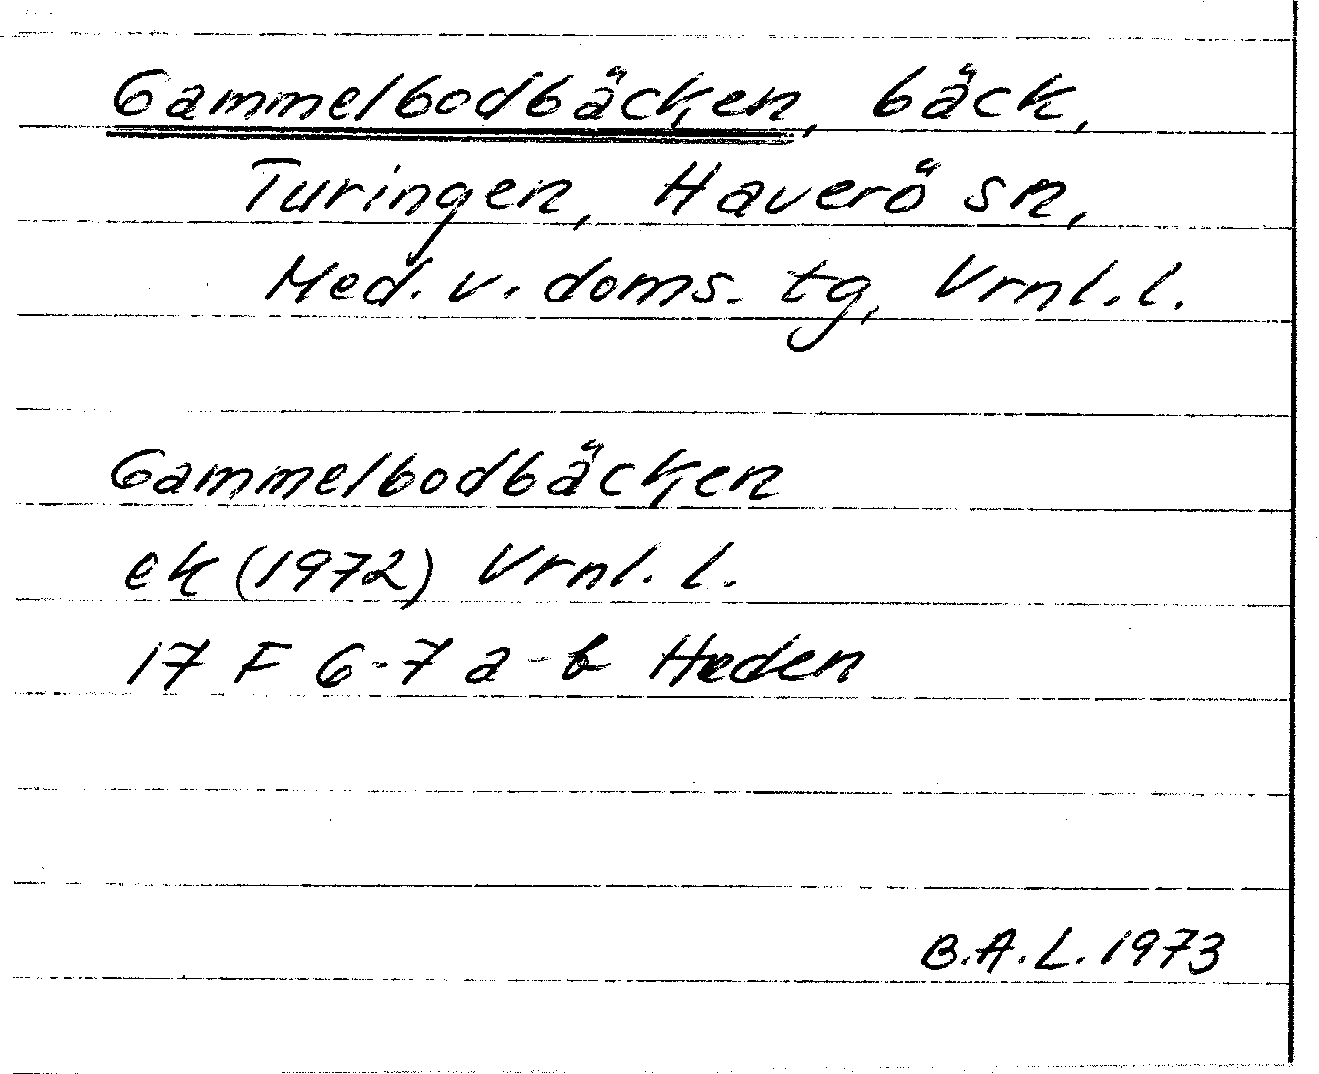 Gammelbodbäcken, bäck,
Turingen, Haverö sn,
Med. v. doms. tg, Vrnl. l.
Gammelbodbäcken
ek (1972) Vrnl. l.
17 F 6-7 a-b Heden
B.A.L. 1973